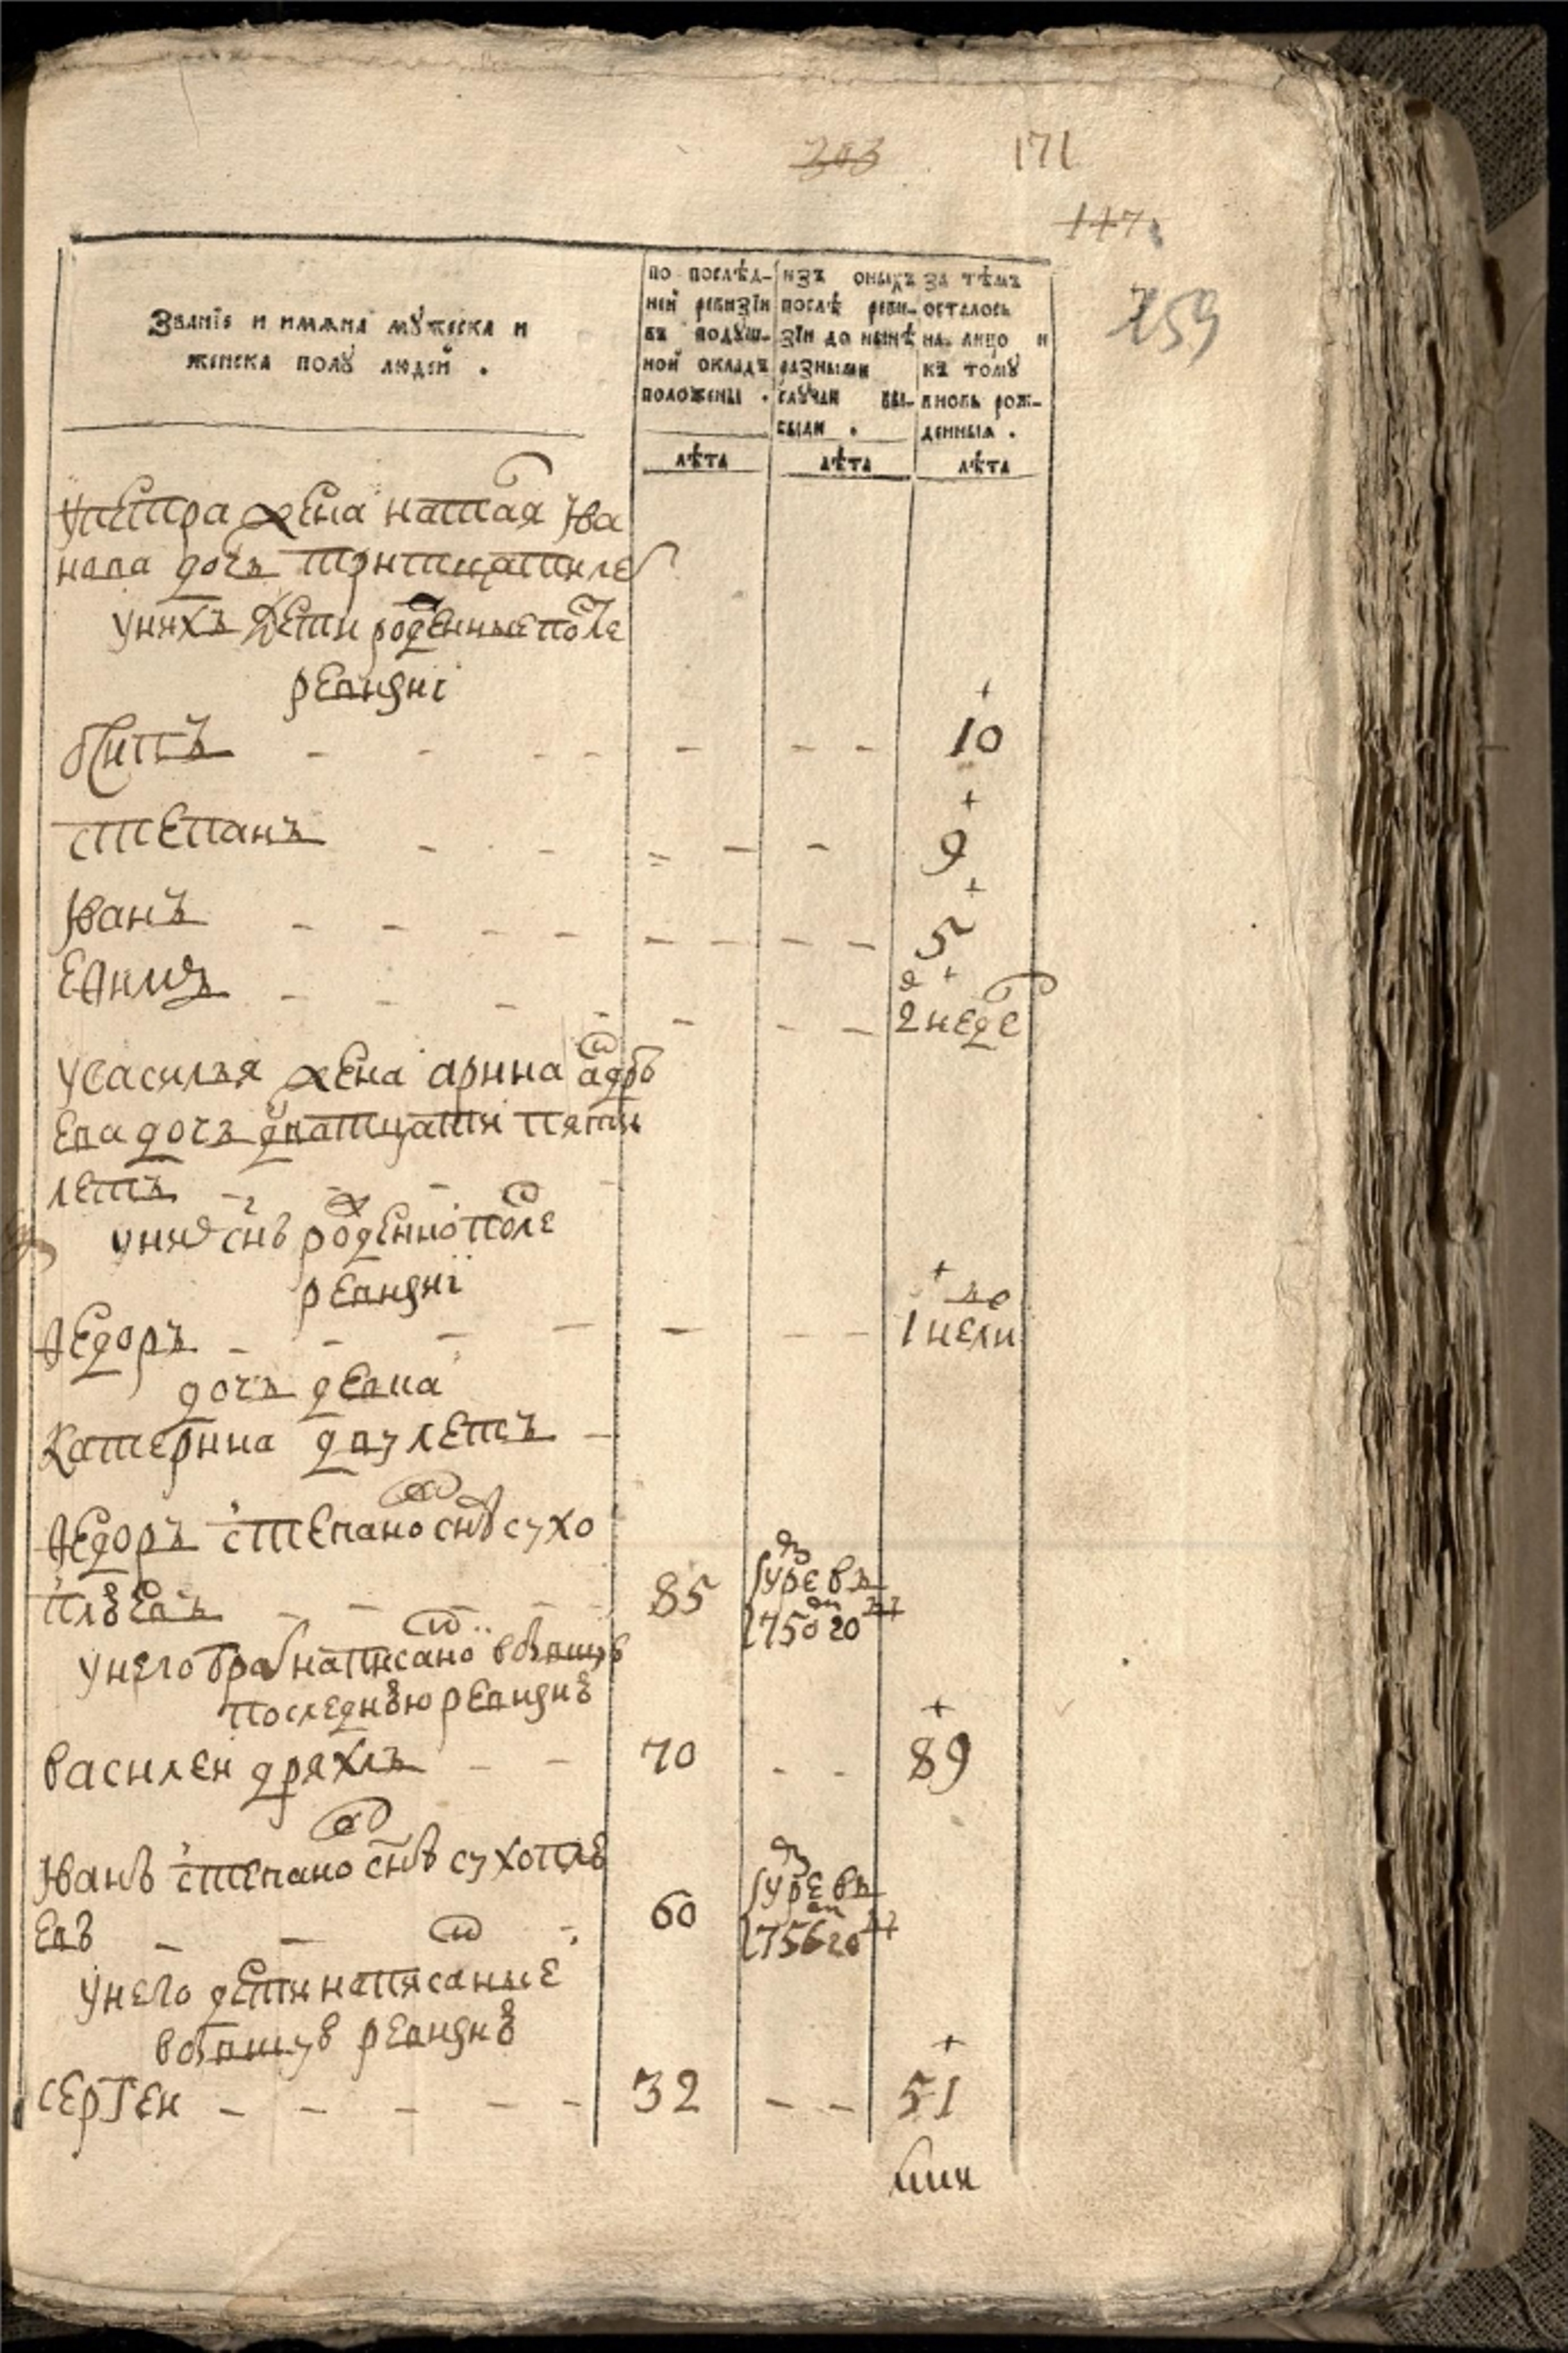 203 171
147
259
Званїе и имѧна мꙋжеска и
женска полꙋ людей .
по послѣд-
ней ревизїи
въ подꙋш-
ной окладъ
положены .
лѣта
изъ оныхъ
послѣ реви-
зїи до нынѣ
разными
слꙋчаи вы-
были .
лѣта
За тѣмъ
осталось
на лицо и
къ томꙋ
вновь рож-
денныя .
лѣта
упетра жена наталя Ива
нова дочь тритцатиле
унихъ дети рожденные после
ревизиї
Ѳ͏илипъ - - - - - - 10
степанъ - - - - - 9
Иванъ - - - - - - - 5
Еѳимъ - - - - - - 2 неде
увасилья жена арина андре
ева дочь дватцати пяти
летъ - - -
унихъ снъ рожденной после
ревизиї
Ѳедоръ - - - - - - 1 недели
дочь девка
Катерина двух летъ -
Ѳедоръ степановъ снъ сухо
плюевъ - - - 85 умре въ
1750 году
унего братъ написаной вбывшую
последнюю ревизию
василей дряхлъ - - 70 - - 89
Иванъ степановъ снъ сухоплю
евъ - - - 60 умре въ
1756 году
унего дети написанные
вбывшую ревизию
сергей - - - - - 32 - - 51